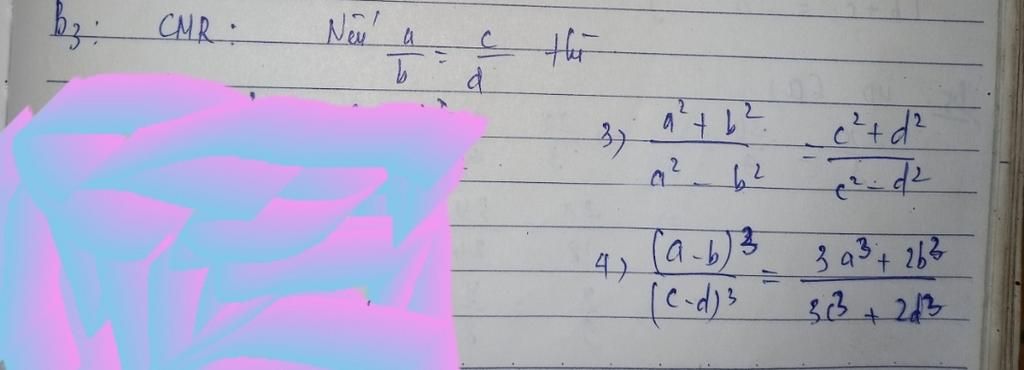 B3: CMR: Nếu a/b = c/d thì
3) (a² + b²)/(a² - b²) = (c² + d²)/(c² - d²)
4) (a-b)³/(c-d)³ = (3a³ + 2b³)/(3c³ + 2d³)